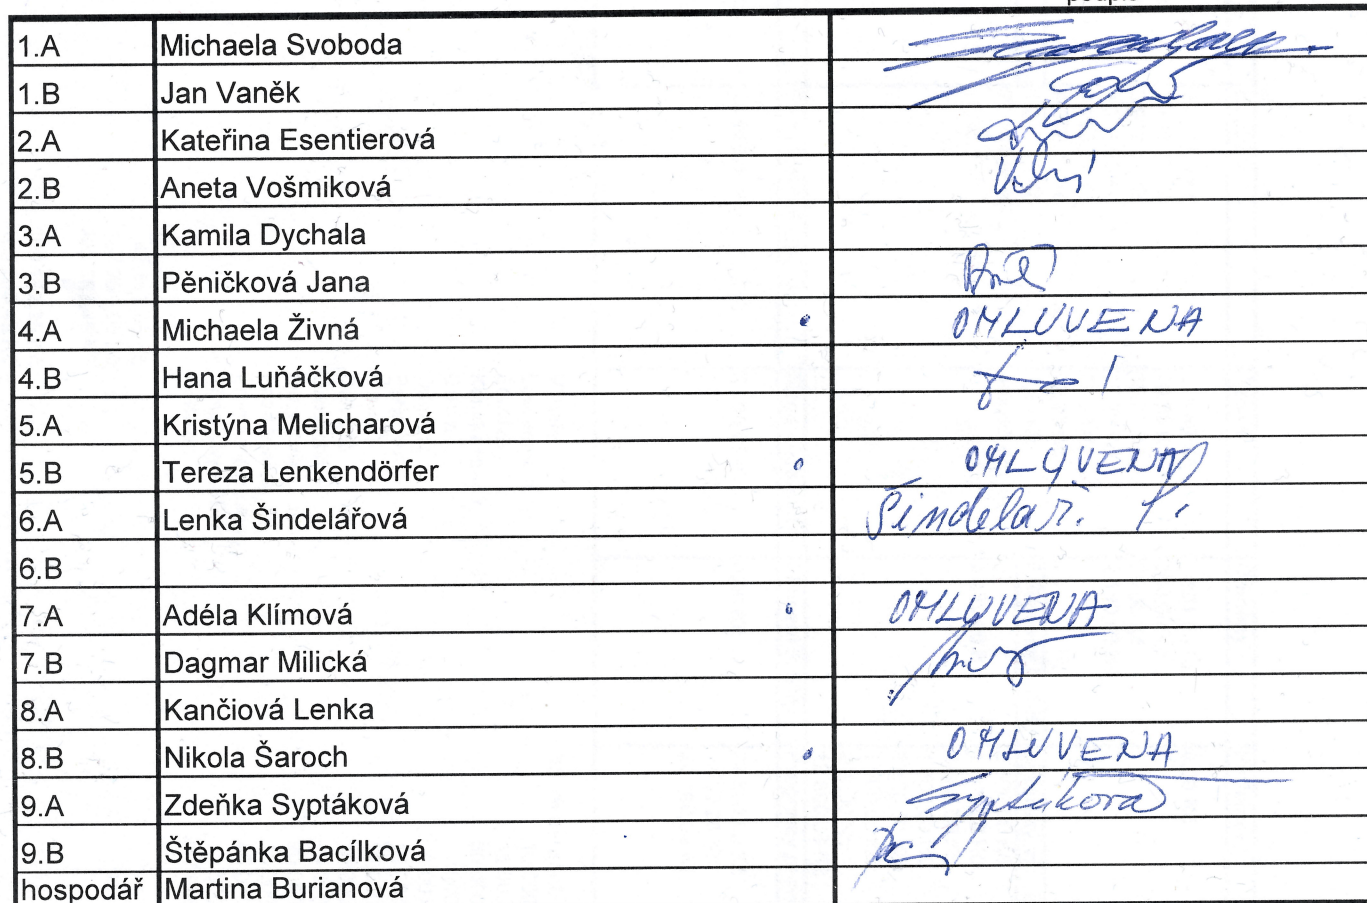 1.A Michaela Svoboda
1.B Jan Vaněk
2.A Kateřina Esentierová
2.B Aneta Vošmiková
3.A Kamila Dychala
3.B Pěničková Jana
4.A Michaela Živná OMLUVENA
4.B Hana Luňáčková
5.A Kristýna Melicharová
5.B Tereza Lenkendörfer OMLUVENA
6.A Lenka Šindelářová Šindelář.
6.B
7.A Adéla Klímová OMLUVENA
7.B Dagmar Milická
8.A Kančiová Lenka
8.B Nikola Šaroch OMLUVENA
9.A Zdeňka Syptáková Syptáková
9.B Štěpánka Bacílková
hospodář Martina Burianová